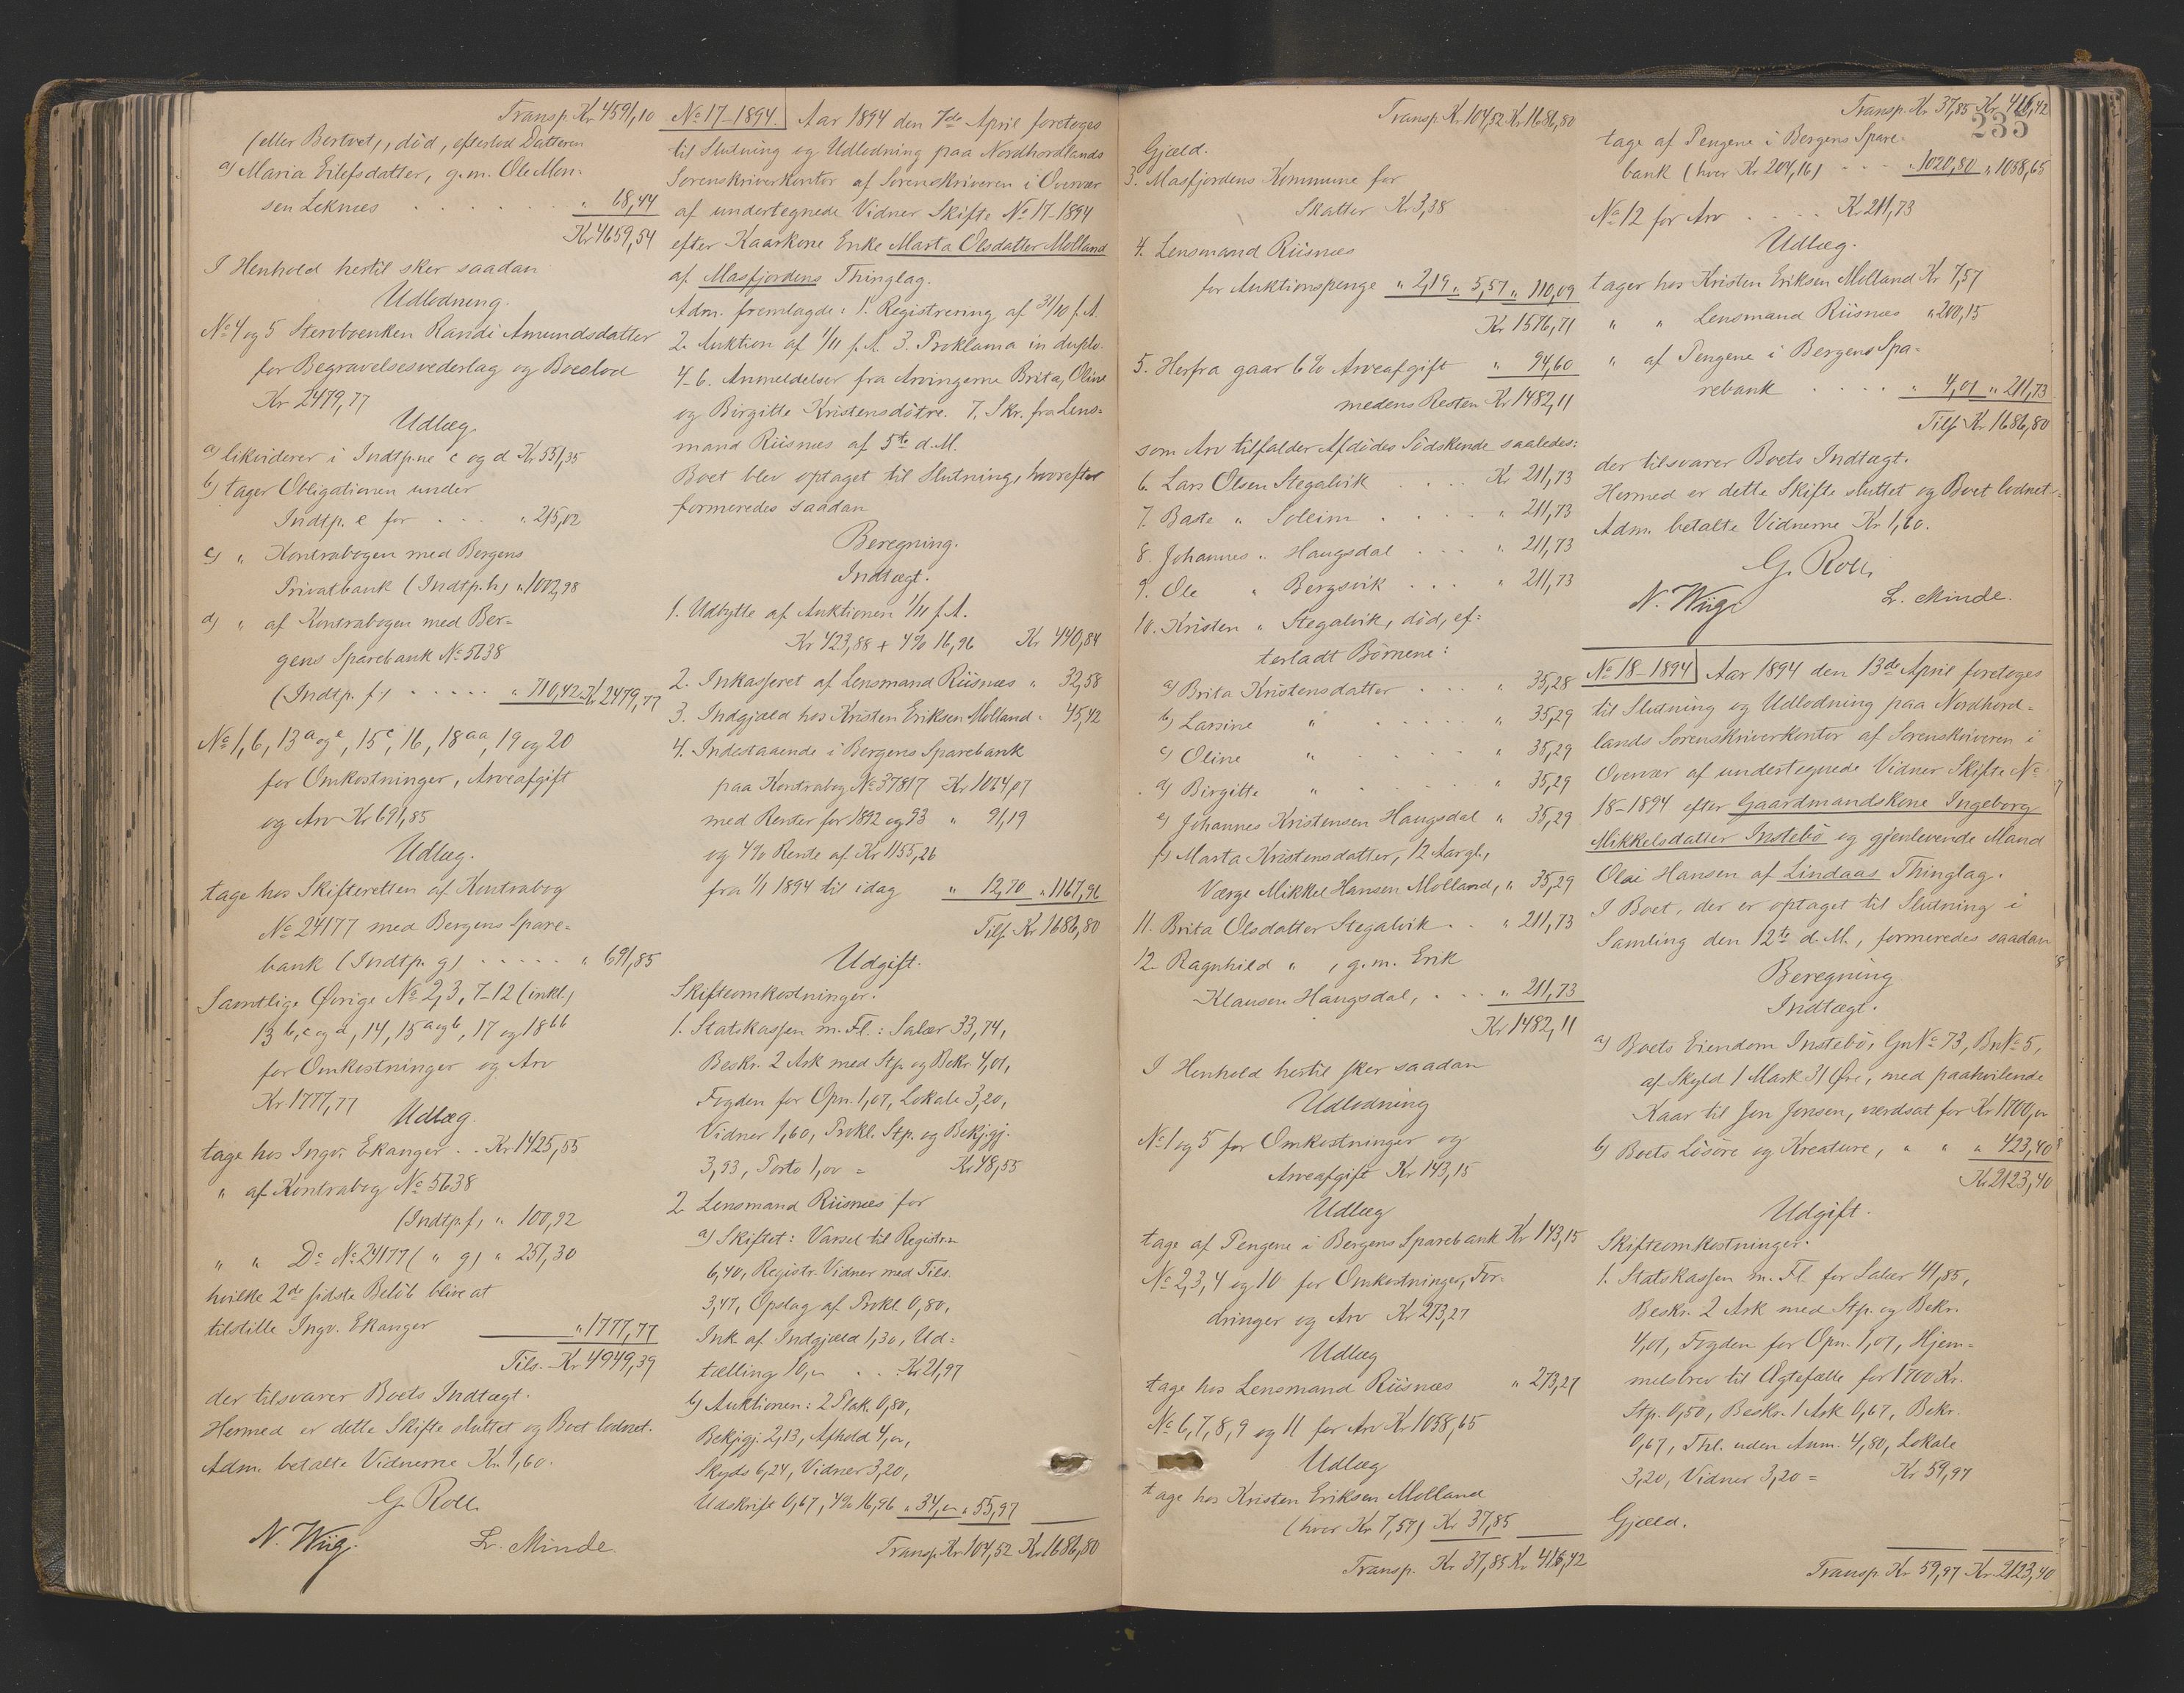 Transp. Kr 4591,10
(eller Bertvet), död, efterlod Datteren
a) Maria Eilefsdatter, g.m. Ole Mon-
sen Leknes . . . . . . " 68,44
Kr 4659,54
I Henhold hertil sker saadan
Udlodning.
No 4 og 5 Stervboenken Randi Amundsdatter
for Begravelsesvederlag og Boeslod
Kr 2479,77
Udlæg.
a) likviderer i Indtp.ne c og d Kr 551,35
b) tager Obligationen under
Indtp. e for . . . " 215,02
c) " Kontrabogen med Bergens
Privatbank (Indtp. h) " 1002,98
d) " af Kontrabogen med Ber=
gens Sparebank No 5638
(Indtp. f) . . . . . " 710,42 Kr 2479,77
No 1, 6, 13 a og e, 15 c, 16, 18 aa, 19 og 20
for Omkostninger, Arveafgift
og Arv Kr 691,85
Udlæg.
tage hos Skifteretten af Kontrabog
No 24177 med Bergens Spare=
bank (Indtp. g) . . . . . " 691,85
Samtlige Övrige No 2, 3, 7-12 (inkl.)
13 b, c og d, 14, 15 a og b, 17 og 18 bb
for Omkostninger og Arv
Kr 1777,77
Udlæg.
tage hos Ingv. Ekanger . . Kr 1425,55
" af Kontrabog No 5638
(Indtp. f) " 100,92
" " Do No 24177 ( " g) " 251,30
hvilke 2de sidste Belöb blive at
tilstille Ingv. Ekanger " 1777,77
Tils. Kr 4949,39
der tilsvarer Boets Indtægt.
Hermed er dette Skifte sluttet og Boet lodnet.
Adm. betalte Vidnerne Kr. 1,60.
G. Roll
N. Wiig. L. Minde
No 17-1894. Aar 1894 den 7de April foretoges
til Slutning og Udlodning paa Nordhordlands
Sorenskriverkontor af Sorenskriveren i Overvær
af undertegnede Vidner Skifte No 17-1894
efter Kaarkone Enke Marta Olsdatter Molland
af Masfjordens Thinglag.
Adm. fremlagde: 1. Registrering af 31/10 f. A.
2. Auktion af 1/11 f. A. 3. Proklama in duplo.
4-6. Anmeldelser fra Arvingerne Brita, Oline
og Birgitte Kristensdötre. 7. Skr. fra Lens=
mand Riisnæs af 5te d. M.
Boet blev optaget til Slutning, hvorefter
formeredes saadan
Beregning.
Indtægt.
1. Udbytte af Auktionen 1/11 f. A.
Kr 423,88 + 4% 16,96 Kr 440,84
2. Inkasseret af Lensmand Riisnæs " 32,58
3. Indgjæld hos Kristen Eriksen Molland " 45,42
4. Indestaaende i Bergens Sparebank
paa Kontrabog No 37817 Kr 1064,07
med Renter for 1892 og 93 " 91,19
og 4% Rente af Kr 1155,26
fra 1/1 1894 til idag " 12,70 " 1167,96
Tils. Kr 1686,80
Udgift.
Skifteomkostninger.
1. Statskassen m. Fl.: Salær 33,74,
Beskr. 2 Ark med Stp. og Bekr. 4,01,
Fogden for Opn. 1,07, Lokale 3,20,
Vidner 1,60, Prokl. Stp. og Bekj.gj.
3,93, Porto 1,00 = Kr 48,55
2. Lensmand Riisnæs for
a) Skiftet: Varsel til Registr.
6,40, Registr. Vidner med Tils.
3,47, Opslag af Prokl. 0,80,
Ink. af Indgjæld 1,30, Ud=
tælling 10,00 . . Kr 21,97
b) Auktionen: 2 Plak. 0,80,
Bekjgj. 2,13, Afhold 4,00,
Skyds 6,24, Vidner 3,20,
Udskrift 0,67, 4% 16,96 " 34,00 " 55,97
Transp. Kr 104,52 Kr 1686,80
Transp. Kr 104,52 Kr 1686,80
Gjæld.
3. Masfjordens Kommune for
Skatter Kr 3,38
4. Lensmand Riisnæs
for Auktionspenge " 2,19 " 5,57 " 110,09
Kr 1576,71
5. Herfra gaar 6% Arveafgift " 94,60
medens Resten Kr 1482,11
som Arv tilfalder Afdödes Södskende saaledes:
6. Lars Olsen Stegalvik . . . . Kr 211,73
7. Baste " Soleim . . . . " 211,73
8. Johannes " Haugsdal . . . " 211,73
9. Ole " Bergsvik . . . " 211,73
10. Kristen " Stegalvik, död, ef=
terladt Börnene:
a) Brita Kristensdatter . . . " 35,28
b) Larsine " . . . . . " 35,29
c) Oline " . . . . " 35,29
d) Birgitte " . . . . " 35,29
e) Johannes Kristensen Haugsdal " 35,29
f) Marta Kristensdatter, 12 Aar gl.,
Værge Mikkel Hansen Molland, " 35,29
11. Brita Olsdatter Stegalvik . . " 211,73
12. Ragnhild " , g.m. Erik
Klausen Haugsdal, . . . " 211,73
Kr 1482,11
I Henhold hertil sker saadan
Udlodning
No 1 og 5 for Omkostninger og
Arveafgift Kr 143,15
Udlæg
tage af Pengene i Bergens Sparebank Kr 143,15
No 2, 3, 4 og 10 for Omkostninger, For=
dringer og Arv Kr 273,27
Udlæg
tage hos Lensmand Riisnæs " 273,27
No 6, 7, 8, 9 og 11 for Arv Kr 1058,65
Udlæg
tage hos Kristen Eriksen Molland
(hver Kr 7,57) Kr 37,85
Transp. Kr 37,85 Kr 416,42
Transp. Kr 37,85 Kr 416,42
235
tage af Pengene i Bergens Spare-
bank (hver Kr 204,16) . . . " 1020,80 " 1058,65
No 12 for Arv . . . . Kr 211,73
Udlæg.
tager hos Kristen Eriksen Molland Kr 7,57
" " Lensmand Riisnæs " 200,15
" af Pengene i Bergens Spa=
rebank . . . . . " 4,01 " 211,73
Tils. Kr 1686,80
der tilsvarer Boets Indtægt.
Hermed er dette Skifte sluttet og Boet lodnet.
Adm. betalte Vidnerne Kr 1,60.
G. Roll
N. Wiig. L. Minde.
No 18-1894 Aar 1894 den 13de April foretoges
til Slutning og Udlodning paa Nordhord=
lands Sorenskriverkontor af Sorenskriveren i
Overvær af undertegnede Vidner Skifte No
18-1894 efter Gaardmandskone Ingeborg
Mikkelsdatter Instebö og gjenlevende Mand
Olai Hansen af Lindaas Thinglag.
I Boet, der er optaget til Slutning i
Samling den 12te d. M., formeredes saadan
Beregning
Indtægt.
a) Boets Eiendom Instebö, Gn No 73, Bn No 5,
af Skyld 1 Mark 31 Öre, med paahvilende
Kaar til Jon Jonsen, værdsat for Kr 1700,00
b) Boets Lösöre og Kreature, " " " 423,40
Kr 2123,40
Udgift.
Skifteomkostninger.
1. Statskassen m. Fl. for Salær 41,85,
Beskr. 2 Ark med Stp. og Bekr.
4,01, Fogden for Opn. 1,07, Hjem=
melsbrev til Ægtefælle for 1700 Kr.
Stp. 0,50, Beskr. 1 Ark 0,67, Bekr.
0,67, Thl. uden Anm. 4,80, Lokale
3,20, Vidner 3,20 = Kr 59,97
Gjæld.
Transp. Kr 59,97 Kr 2123,40